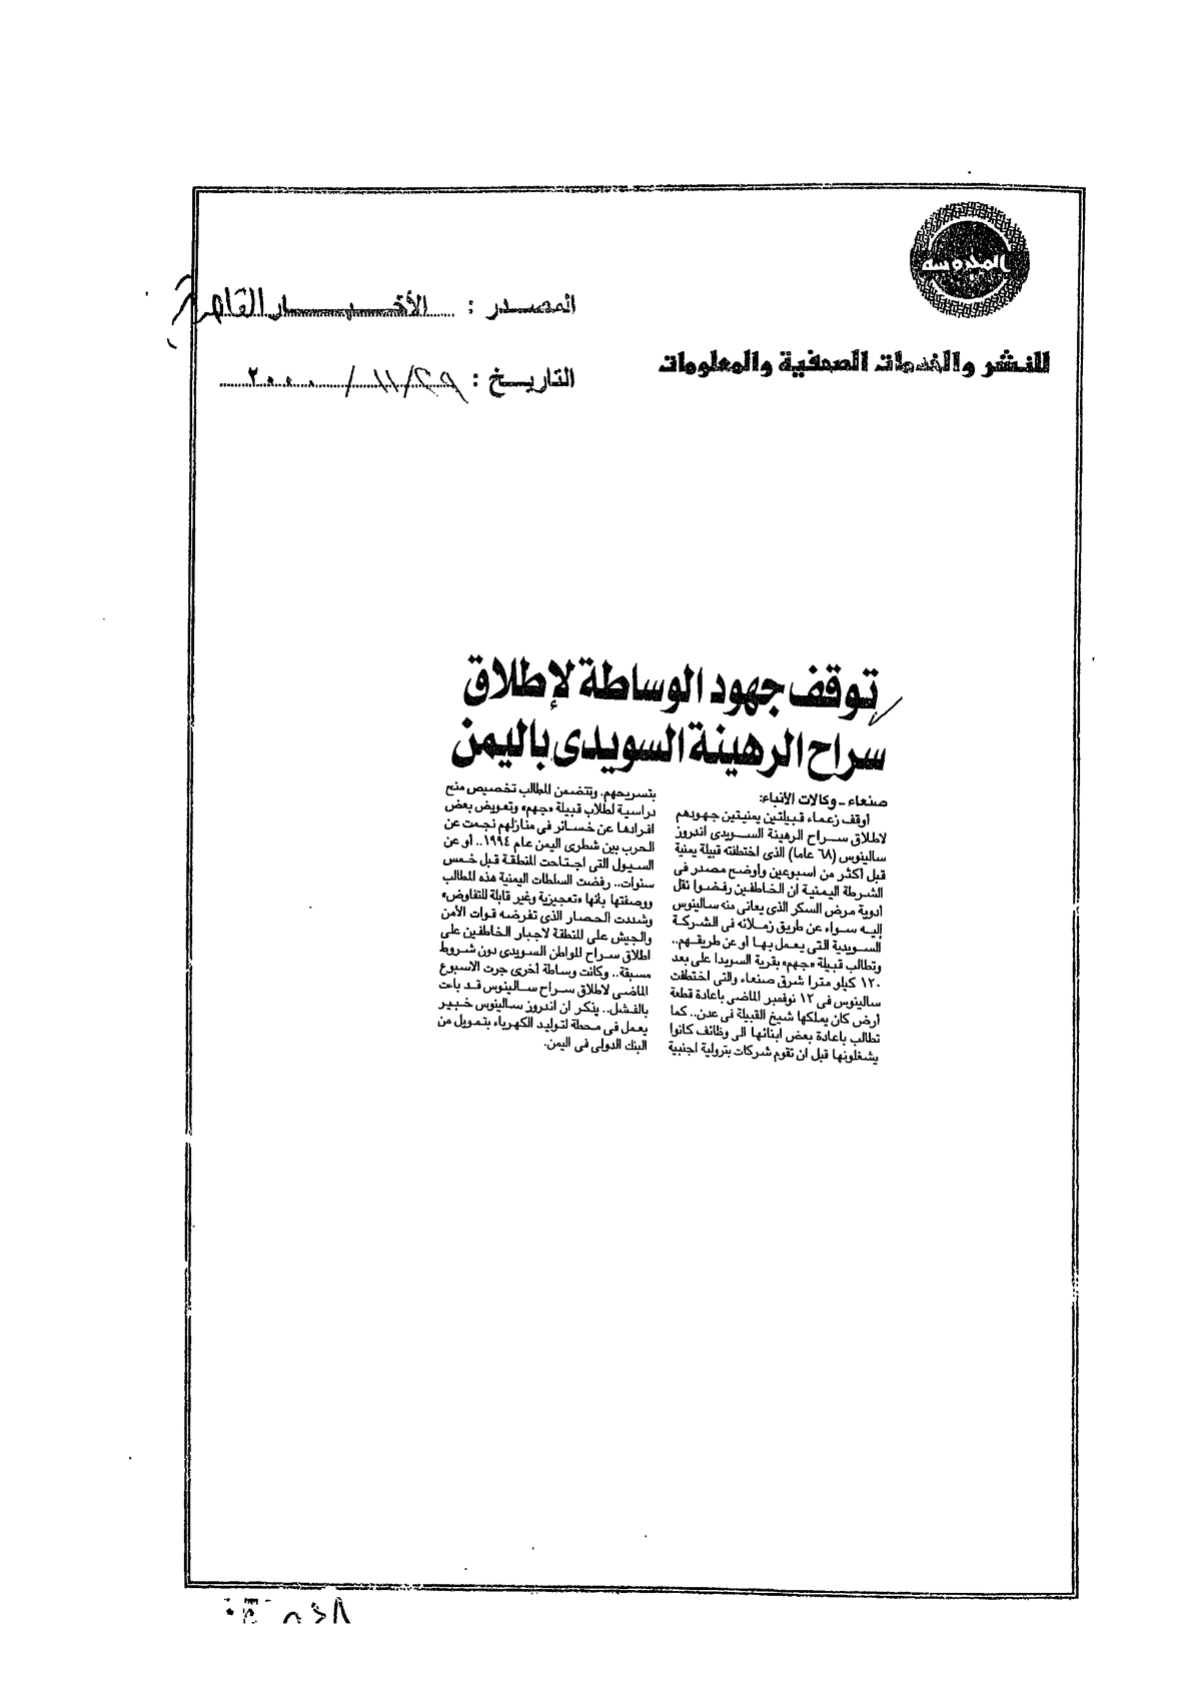 المحروسة
للنشر والخدمات الصحفية والمعلومات
المصدر : الأخبار القاهرة
التاريخ : ٢٩/ ١١/ ٢٠٠٠
توقف جهود الوساطة لإطلاق
سراح الرهينة السويدى باليمن
صنعاء ـ وكالات الأنباء:
أوقف زعماء قبيلتين يمنيتين جهودهم
لاطلاق سراح الرهينة السويدى اندروز
سالينوس (٦٨ عاما) الذى اختطفته قبيلة يمنية
قبل أكثر من اسبوعين وأوضح مصدر فى
الشرطة اليمنية ان الخاطفين رفضوا نقل
أدوية مرض السكر الذى يعانى منه سالينوس
إليه سواء عن طريق زملائه فى الشركة
السويدية التى يعمل بها أو عن طريقهم..
وتطالب قبيلة «جهم» بقرية السريدا على بعد
١٢٠ كيلو مترا شرق صنعاء والتى اختطفت
سالينوس فى ١٢ نوفمبر الماضى باعادة قطعة
أرض كان يملكها شيخ القبيلة فى عدن.. كما
تطالب باعادة بعض ابنائها الى وظائف كانوا
يشغلونها قبل ان تقوم شركات بترولية اجنبية
بتسريحهم. وتتضمن المطالب تخصيص منح
دراسية لطلاب قبيلة «جهم» وتعويض بعض
افرادها عن خسائر فى منازلهم نجمت عن
الحرب بين شطرى اليمن عام ١٩٩٤.. أو عن
السيول التى اجتاحت المنطقة قبل خمس
سنوات.. رفضت السلطات اليمنية هذه المطالب
ووصفتها بأنها «تعجيزية وغير قابلة للتفاوض»
وشددت الحصار الذى تفرضه قوات الأمن
والجيش على المنطقة لاجبار الخاطفين على
اطلاق سراح المواطن السويدى دون شروط
مسبقة.. وكانت وساطة أخرى جرت الاسبوع
الماضى لاطلاق سراح سالينوس قد باءت
بالفشل.. يذكر ان اندروز سالينوس خبير
يعمل فى محطة لتوليد الكهرباء بتمويل من
البنك الدولى فى اليمن.